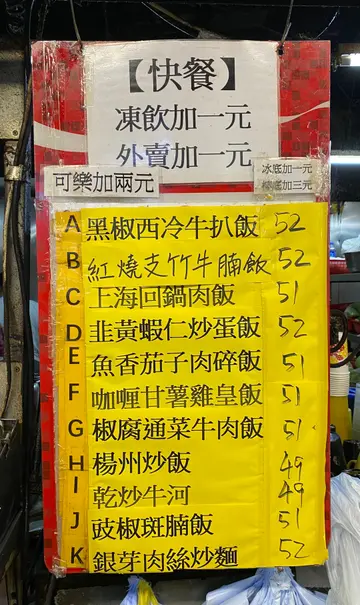 【快餐】
凍飲加一元
外賣加一元
可樂加兩元
冰底加一元
加三元
A 黑椒西冷牛扒飯 52
B 紅燒支竹牛腩飯 52
C 上海回鍋肉飯 51
D 韭黃蝦仁炒蛋飯 52
E 魚香茄子肉碎飯 51
F 咖喱甘薯雞皇飯 51
G 椒腐通菜牛肉飯 51
H 楊州炒飯 49
I 乾炒牛河 49
J 豉椒斑腩飯 51
K 銀芽肉絲炒麵 52